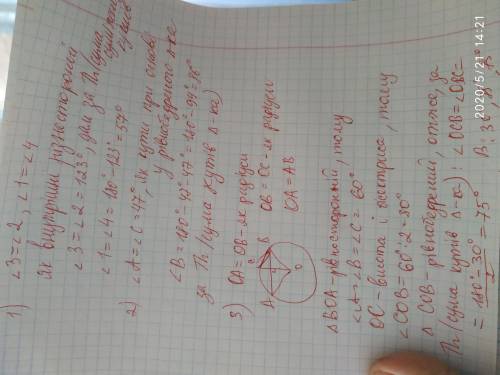 1) ∠3=∠2, ∠1=∠4
як внутрішні різносторонні
∠3=∠2=123°, далі за Th. (сума суміжних кутів)
∠1=∠4=180°-123°=57°
2) ∠A=∠C=47°, як кути при основі
у рівнобедреного Δ-ка
∠B=180°-47°-47°=180°-94°=86°
за Th. (сума кутів Δ-ка)
3) OA=OB-як радіуси
A C B OB=OC-як радіуси
O OA=AB
Δ BOA-рівносторонній, тому
∠A=∠B=∠C=60°
OC-висота і бісектриса, тому
∠COB=60°:2=30°
Δ COB-рівнобедрений, отже, за
Th. (сума кутів Δ-ка): ∠OCB=∠OBC=
=180°-30°/2=75°
2020/5/21 14:21